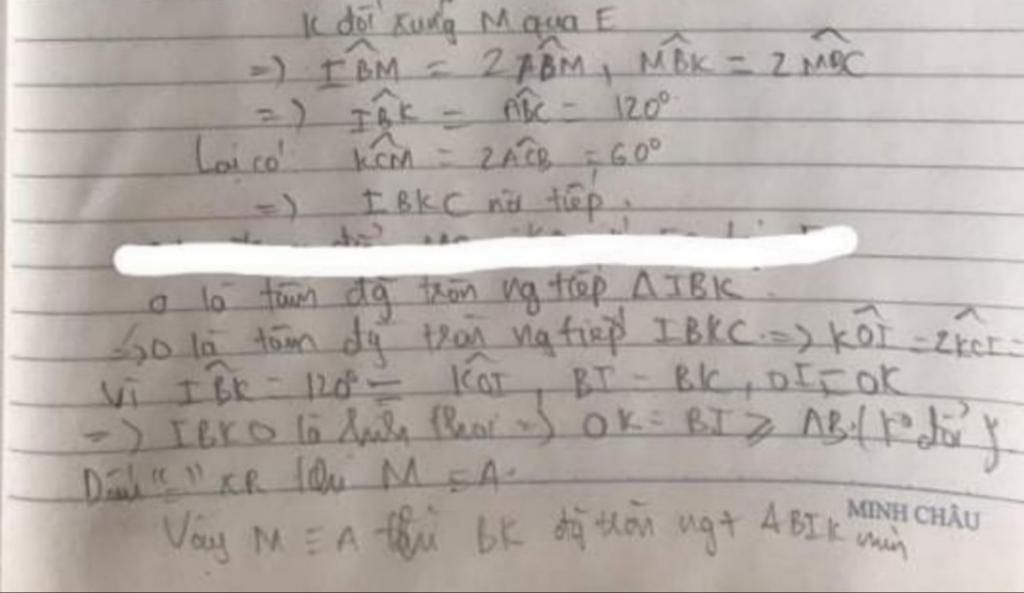 K đối xứng M qua E
=) IBM = 2ABM, MBK = 2MBC
=) IBK = ABC = 120°
Lại có KCM = 2ACB = 60°
=) IBKC nội tiếp.
O là tâm đg tròn ng tiếp ΔIBK.
=) O là tâm đg tròn ng tiếp IBKC =) KOI = 2KCI =
Vì IBK = 120° = KOI, BI = BK, OI = OK
=) IBKO là hình thoi =) OK = BI ≥ AB (ko đổi)
Dấu "=" XR khi M ≡ A.
Vậy M ≡ A thì BK đg tròn ngt ΔBIK min
MINH CHÂU